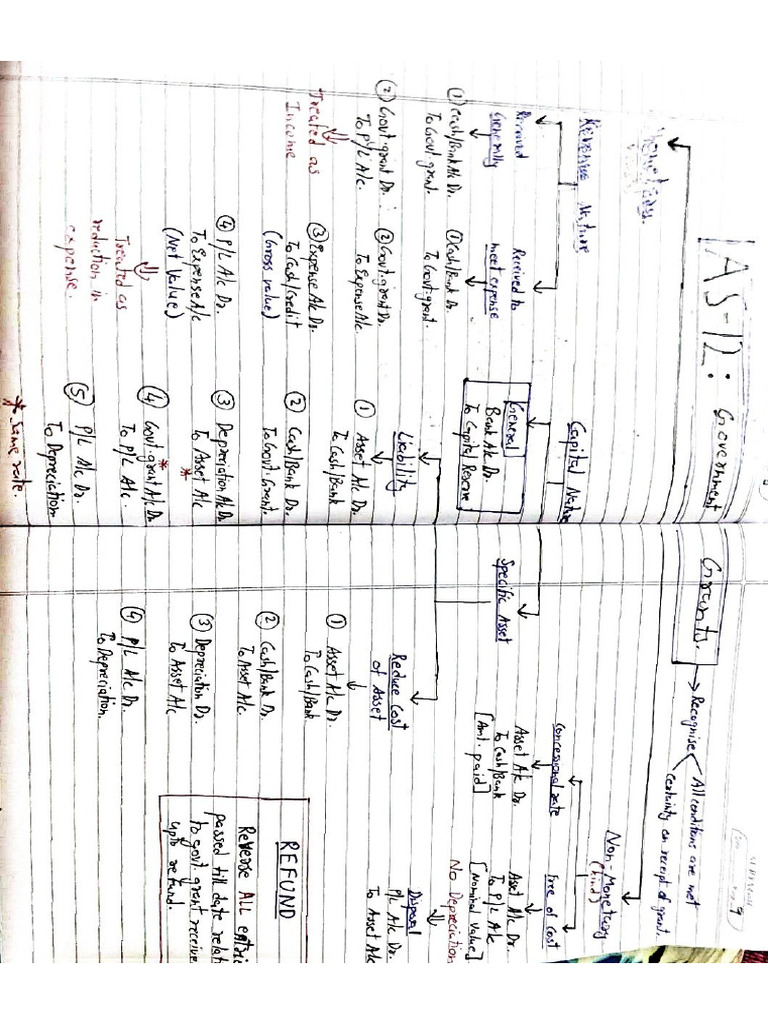 AS-12: Government Grants.
Recognise
All conditions are met
Certainty on receipt of grant.
Monetary.
Non-Monetary
(kind)
Revenue Nature
Capital Nature
Received
Generally
① Cash/Bank A/c Dr.
To Govt. grant.
② Govt. grant Dr.
To P/L A/c.
Treated as
Income
Received to
meet expense
① Cash/Bank Dr.
To Govt. grant.
② Govt. grant Dr.
To Expense A/c.
③ Expense A/c Dr.
To Cash/Credit
(Gross value)
④ P/L A/c Dr.
To Expense A/c
(Net Value)
Treated as
reduction in
expense.
General
Bank A/c Dr.
To Capital Reserve
Specific Asset
Liability
① Asset A/c Dr.
To Cash/Bank
② Cash/Bank Dr.
To Govt. Grant.
③ Depreciation A/c Dr
To Asset A/c
*
④ Govt. grant A/c Dr
To P/L A/c.
*
⑤ P/L A/c Dr.
To Depreciation
* Same rate.
Reduce Cost
of Asset
① Asset A/c Dr.
To Cash/Bank
② Cash/Bank Dr.
To Asset A/c
③ Depreciation Dr.
To Asset A/c
④ P/L A/c Dr.
To Depreciation.
Concessional rate
Asset A/c Dr.
To Cash/Bank
[Amt. paid]
Free of cost
Asset A/c Dr.
To P/L A/c
[Nominal Value]
No Depreciation
Disposal
P/L A/c Dr.
To Asset A/c
REFUND
Reverse ALL entries
passed till date relat
to govt. grant receive
upto refund.